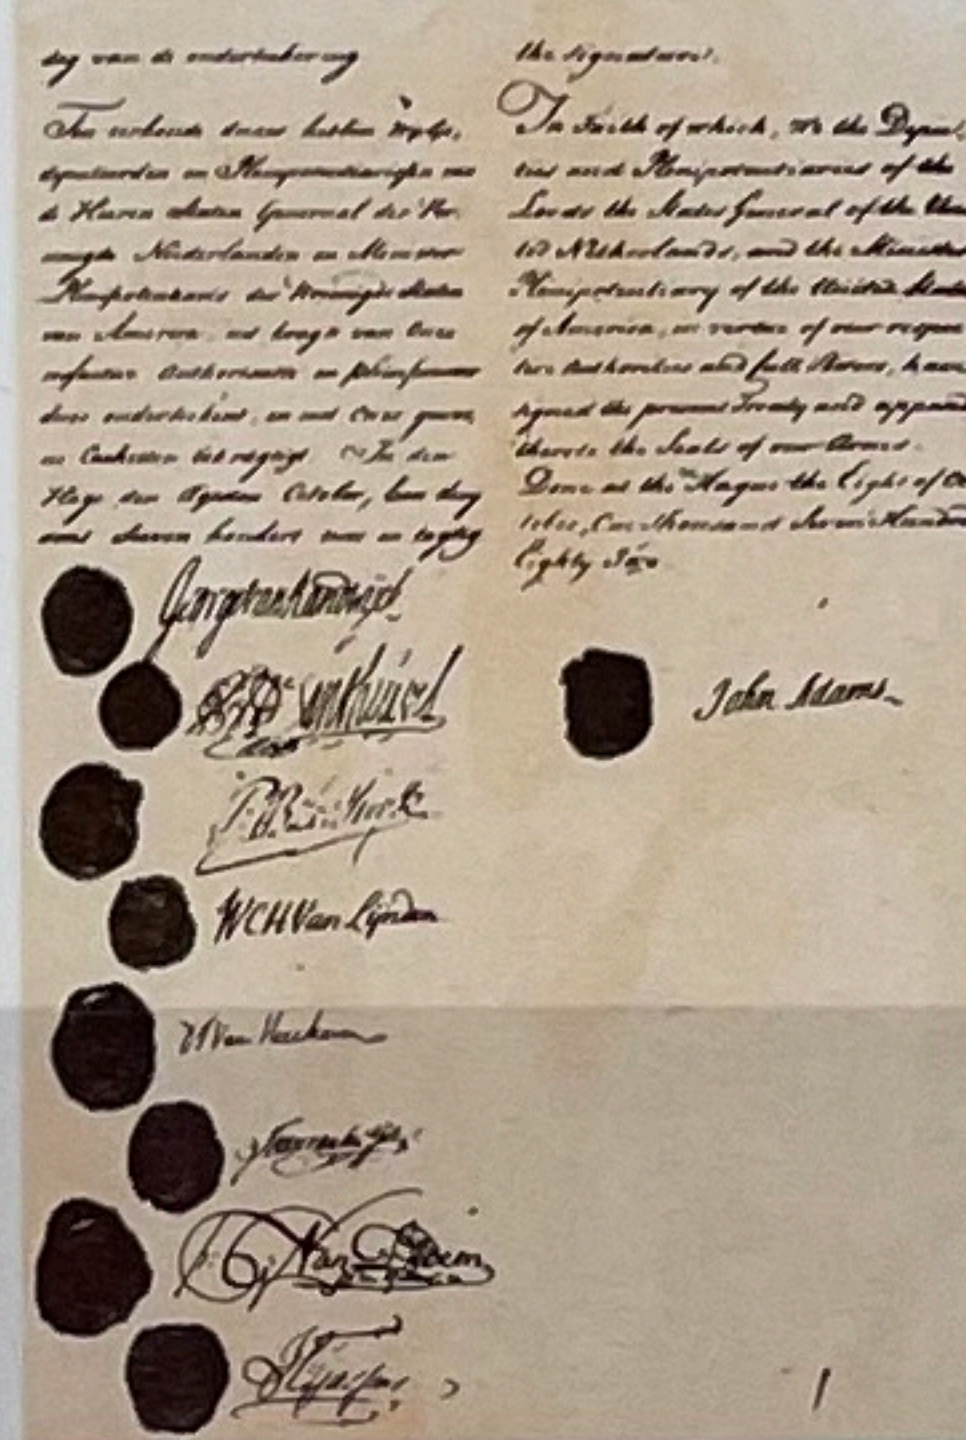 dag van de ondertekening
Ten oirkonde deezes hebben Wy Ge-
deputeerden en Plenipotentiarissen van
de Heeren Staaten Generaal der Ver-
eenigde Nederlanden en Minister
Plenipotentiaris der Vereenigde Staaten
van America, uit kragt van Onze
Authorisatie en
deeze ondertekend, en met Onze gewoone
Cachetten bekragtigt. In den
Hage den Agtsten October, Een duyz
end Seeven honderd twee en tagtig
George van Randwyck
van den Santheuvel
P. v. Bleiswyk
WCH Van Lynden
D J Van Heeckeren
F. G. Van Dedem
H Tjassens
the signature.
In Faith of which, We the Depu-
ties and Plenipotentiaries of the
Lords the States General of the Uni
ted Netherlands, and the Minister
Plenipotentiary of the United States
of America, in vertue of our respec
tive Authorities and full Powers, have
signed the present Treaty and apposed
thereto the Seals of our Arms.
Done at the Hague the Eight of Oc
tober, One Thousand Seven Hundred
Eighty Two
John Adams